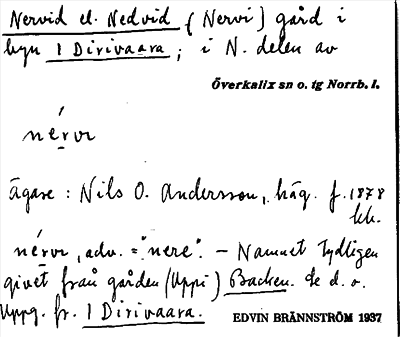 Nervid el. Nedvid (Nervi) gård i
byn 1 Dirivaara; i N. delen av
Överkalix sn o. tg Norrb. l.
nẹ́rvɩ
Ägare: Nils O. Andersson, häg. f. 1878
kk.
nẹ́rvɩ, adv. = "nere". – Namnet tydligen
givet från gården (Uppi) Backen. Se d. o.
Uppg. fr. 1 Dirivaara.
EDVIN BRÄNNSTRÖM 1937